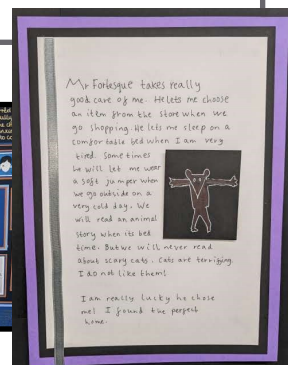 Mr Fortesque takes really
good care of me. He lets me choose
an item from the store when we
go shopping. He lets me sleep on a
comfortable bed when I am very
tired. Sometimes
he will let me wear
a soft jumper when
we go outside on a
very cold day. We
will read an animal
story when its bed
time. But we will never read
about scary cats. Cats are terrifying.
I do not like them!
I am really lucky he chose
me! I found the perfect
home.